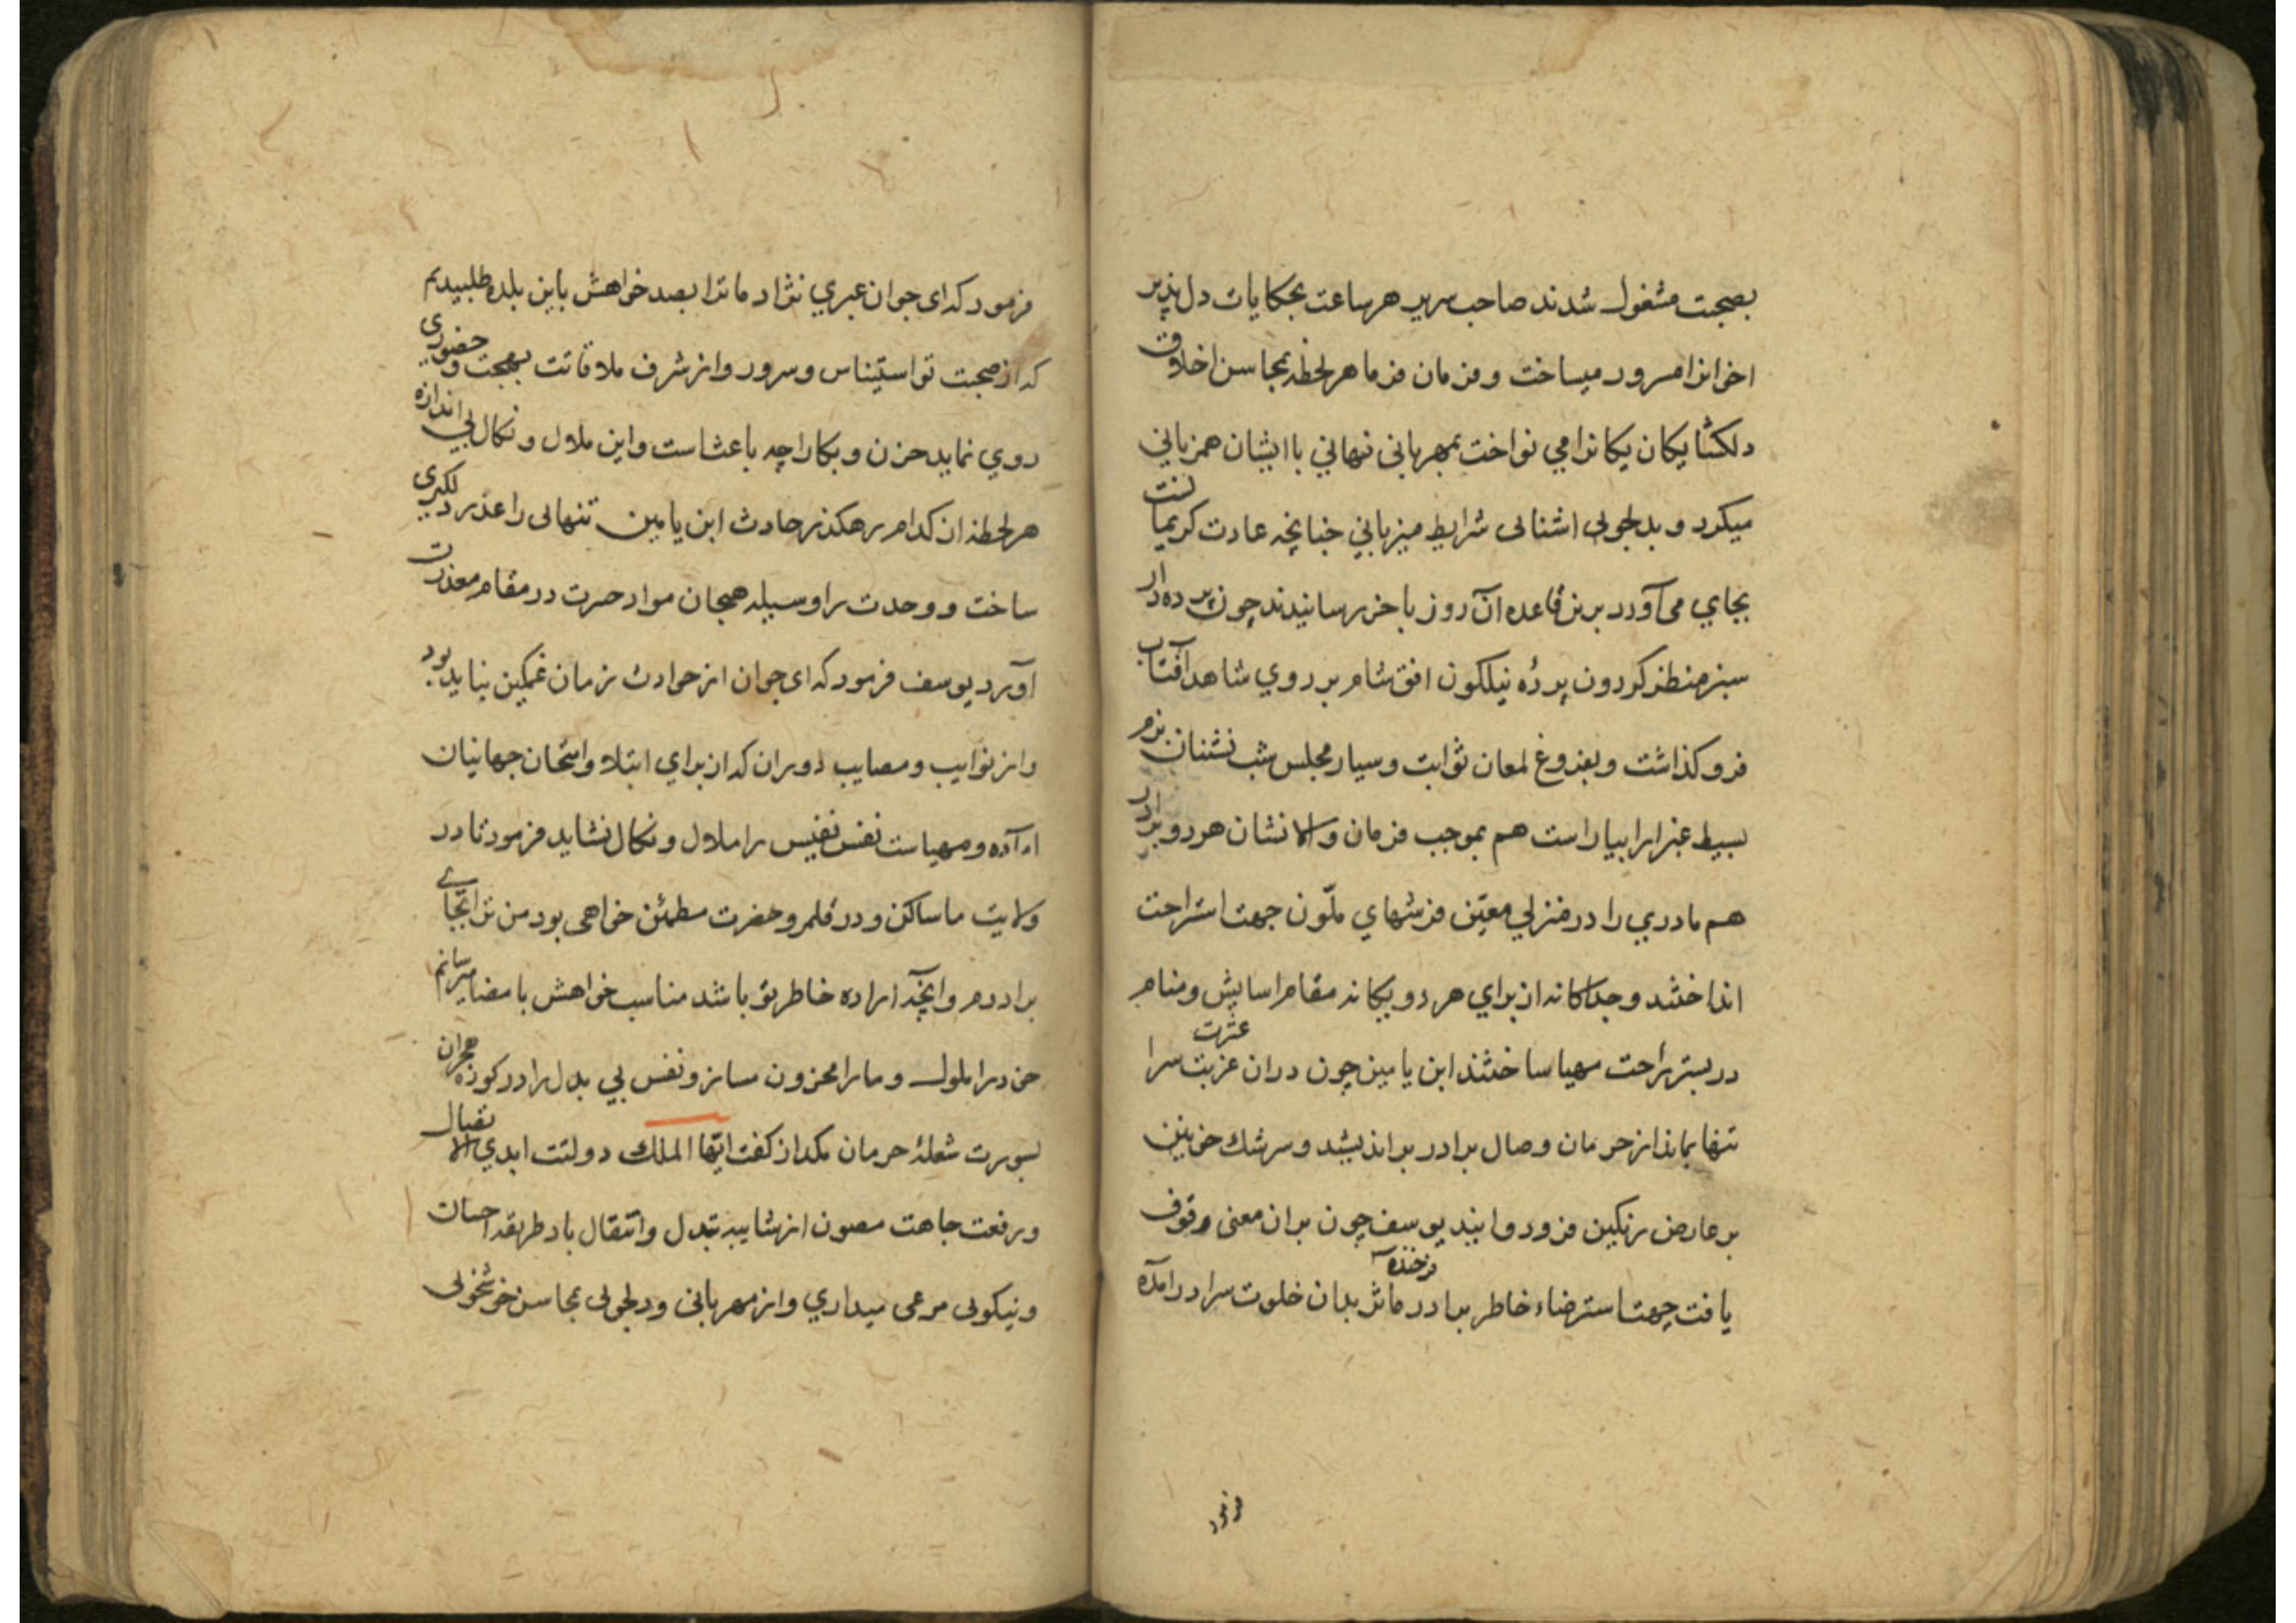 بصحبت مشغول شدند صاحب سریر هر ساعت بحکایات دل پذیر
اخوانرا مسرور میساخت و فرمان فرما هر لحظه بمحاسن اخلاق
دلکشا یکان یکانرا می نواخت بمهربانی نهانی با ایشان همزبانی
میکرد و بدلجویی اشنائی شرایط میزبانی چنانچه عادت کریمانست
بجای می آورد برین قاعده آن روز باخر رسانیدند چون پرده دار
سبز منظر کردون پردهٔ نیلکون افق شام بر روی شاهد آفتاب
فرو کذاشت و بفروغ لمعان ثوابت و سیار مجلس شب نشینان بزم
بسیط غبرا را بیاراست هم بموجب فرمان والا نشان هر دو برادر
هم مادری را در منزلی معیّن فرشهای ملّون جهت استراحت
انداختند و جداکانه از برای هر دو یکانه مقام اسایش و منام
در بستر راحت مهیا ساختند ابن یامین چون دران عزبت سرا
عترت
تنها بماند از حرمان وصال برادر براندیشید و سرشک خونین
بر عارض رنکین فرو دوانید یوسف چون بران معنی وقوف
یافت جهت استرضاء خاطر برادر بدان خلوت سرا درآمده
فرخنده
فرمود
فرمود که ای جوان عبری نژاد ما ترا بصد خواهش باین بلده طلبیدیم
که از صحبت تو استیناس و سرور و از شرف ملاقاتت بهجت و حضوری
روی نماید حزن و بکا را چه باعث است و این ملال و نکال بی اندازه
هر لحظه از کدام رهکذر حادث ابن یامین تنهائی را عذر دلکیری
ساخت و وحدت را وسیله هیجان مواد حسرت در مقام معذرت
آورد یوسف فرمود که ای جوان از حوادث زمان غمکین نباید بود
و از نوایب و مصایب دوران که از برای ابتلا و امتحان جهانیان
آماده و مهیاست نفس نفیس را ملال و نکال نشاید فرمود تا در
ولایت ما ساکن و در قلمرو حضرت مطمئن خواهی بود من ترا بجای
برادرم و آنچه اراده خاطر تو باشد مناسب خواهش بامضا میرسانم
خود را ملول و ما را محزون مساز و نفس بی بدل را در کوزه هجران
بسورت شعلهٔ حرمان مکداز کفت ایّها الملک دولتت ابدی الاتصال
و رفعت جاهت مصون از شایبه تبدل و انتقال باد طریقه احسان
و نیکوئی مرعی میداری و از مهربانی و دلجوئی بمحاسن خوشخوئی